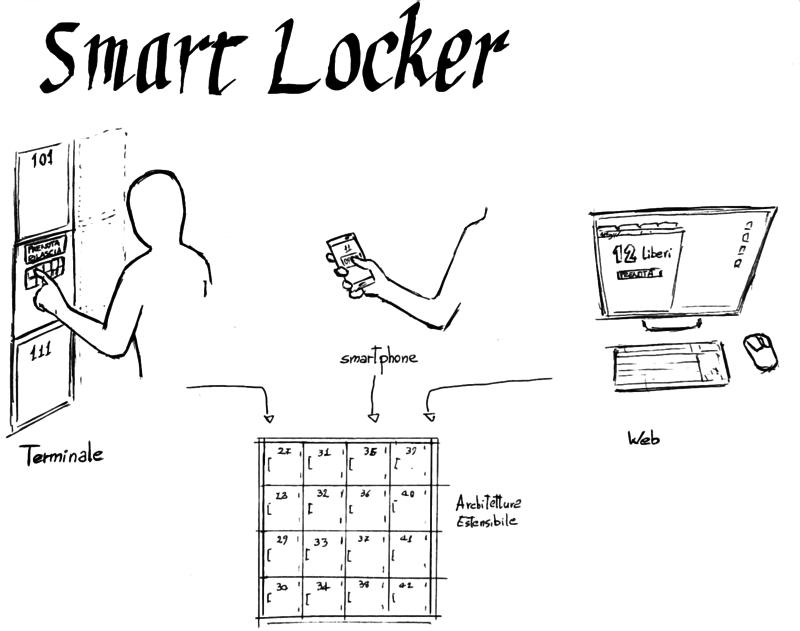 Smart Locker
101
PRENOTA
RILASCIA
111
Terminale
11
smartphone
12 Liberi
PRENOTA
Web
27 31 35 39
23 32 36 40
29 33 37 41
30 34 38 42
Architettura
Estensibile